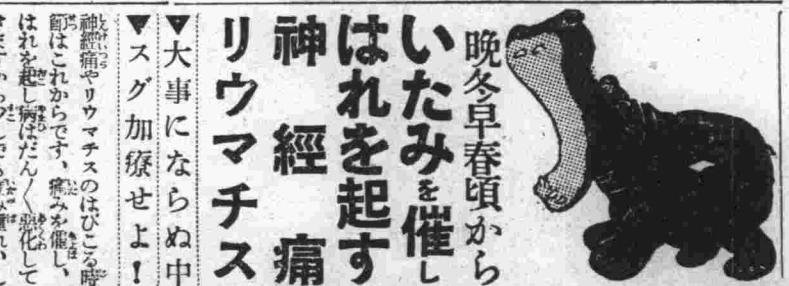 晩冬早春頃から
いたみを催し
はれを起す
神經痛
リウマチス
▼大事にならぬ中
▼スグ加療せよ！
神經痛やリウマチスのはびこる時
節はこれからです、痛みを催し、
はれを起し病はだん〳〵惡化して